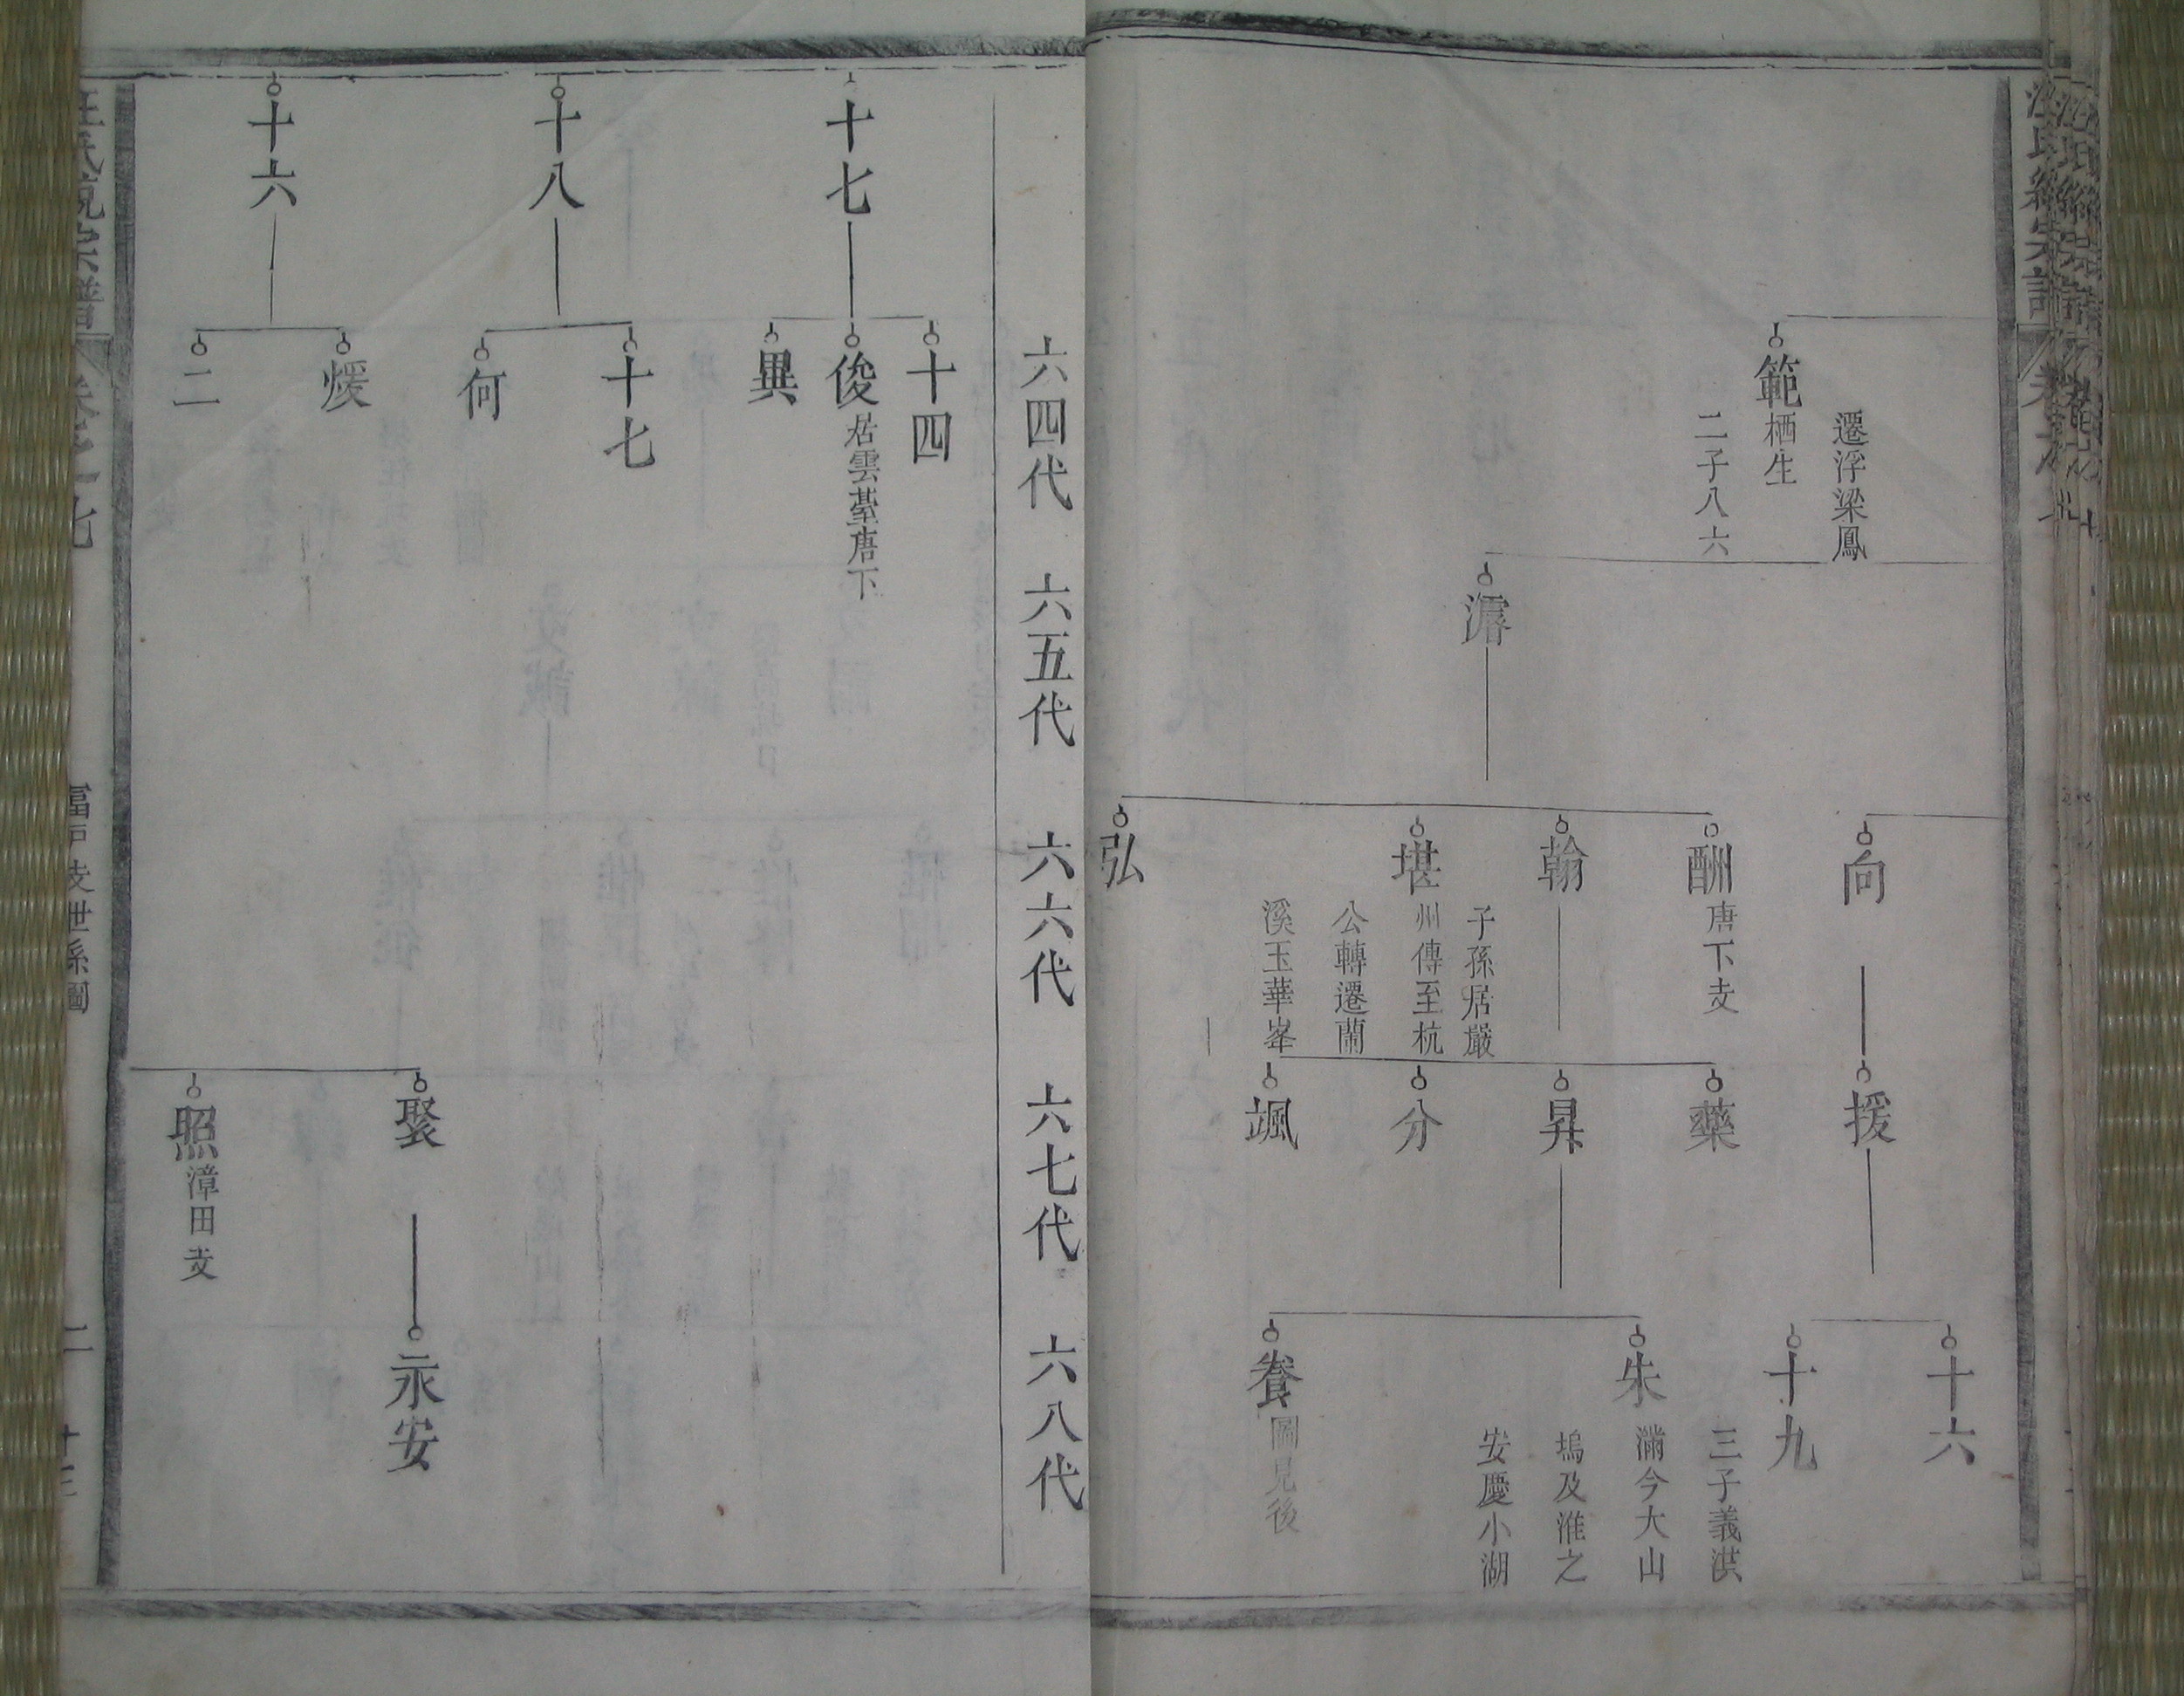 範
遷浮梁鳳
栖生
二子八六
濳
向
酬
唐下支
翰
堪
子孫居嚴
州傳至杭
公轉遷蘭
溪玉華峯
弘
援
藥
昇
分
颯
十六
十九
朱
三子義淇
滿今大山
塢及淮之
安慶小湖
養
圖見後
六四代 六五代 六六代 六七代 六八代
十七
十八
十六
十四
俊
居雲臺唐下
異
十七
何
煖
二
聚
照
漳田支
永安
汪氏統宗譜
富戸支世系圖